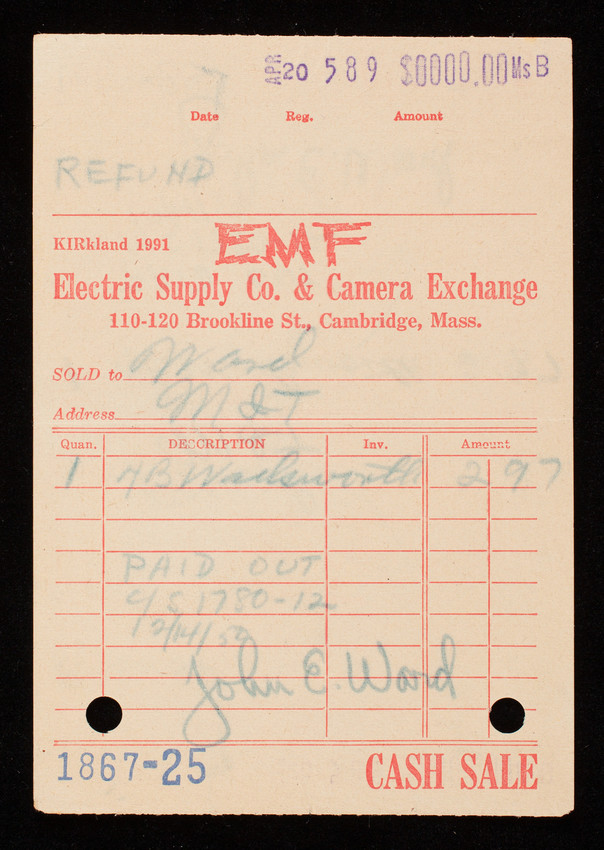 APR 20 589 $0000.00 Ms B
Date Reg. Amount
REFUND
KIRkland 1991 EMF
Electric Supply Co. & Camera Exchange
110-120 Brookline St., Cambridge, Mass.
SOLD to Ward
Address M & T
Quan. DESCRIPTION Inv. Amount
1 Wadsworth 2 97
PAID OUT
1780-12
12/14/59
John E. Ward
1867-25 CASH SALE